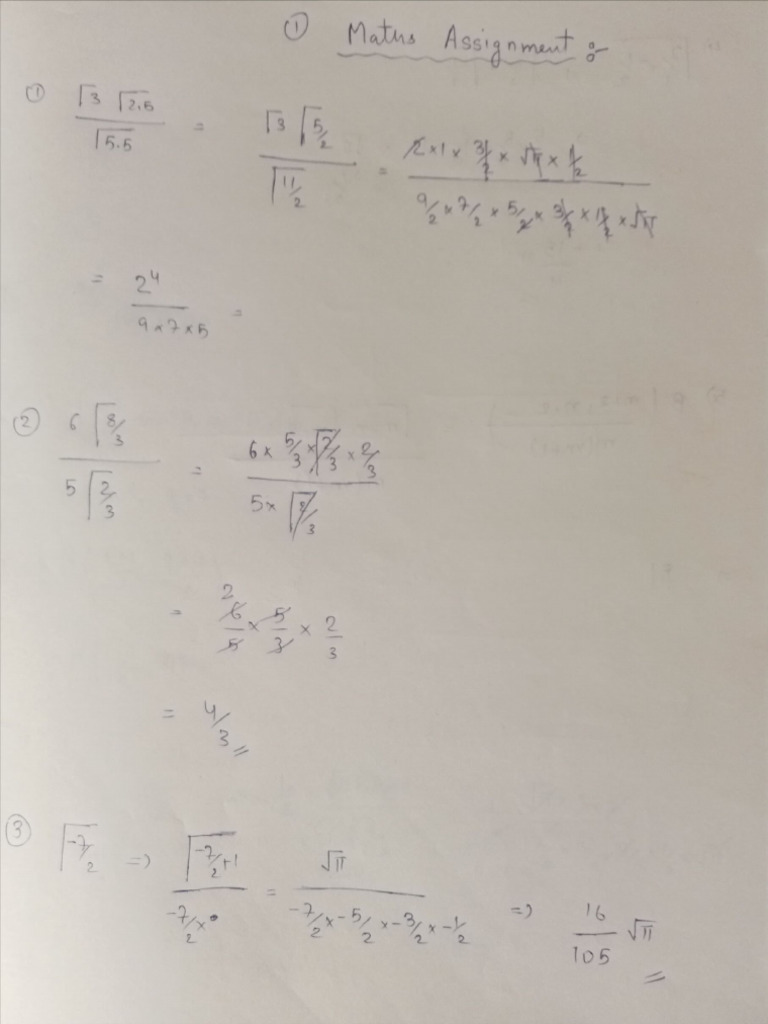 ① Maths Assignment :-
① Γ3 Γ2.5 / Γ5.5 = Γ3 Γ5/2 / Γ11/2 = 2×1×3/2×√π×1/2 / 9/2×7/2×5/2×3/2×1/2×√π
= 2⁴ / 9×7×5 =
② 6 Γ8/3 / 5 Γ2/3 = 6×5/3×Γ2/3×2/3 / 5×Γ2/3
= 2 6/5 × 5/3 × 2/3
= 4/3
③ Γ-7/2 => Γ-7/2+1 / -7/2× = √π / -7/2×-5/2×-3/2×-1/2 => 16/105 √π